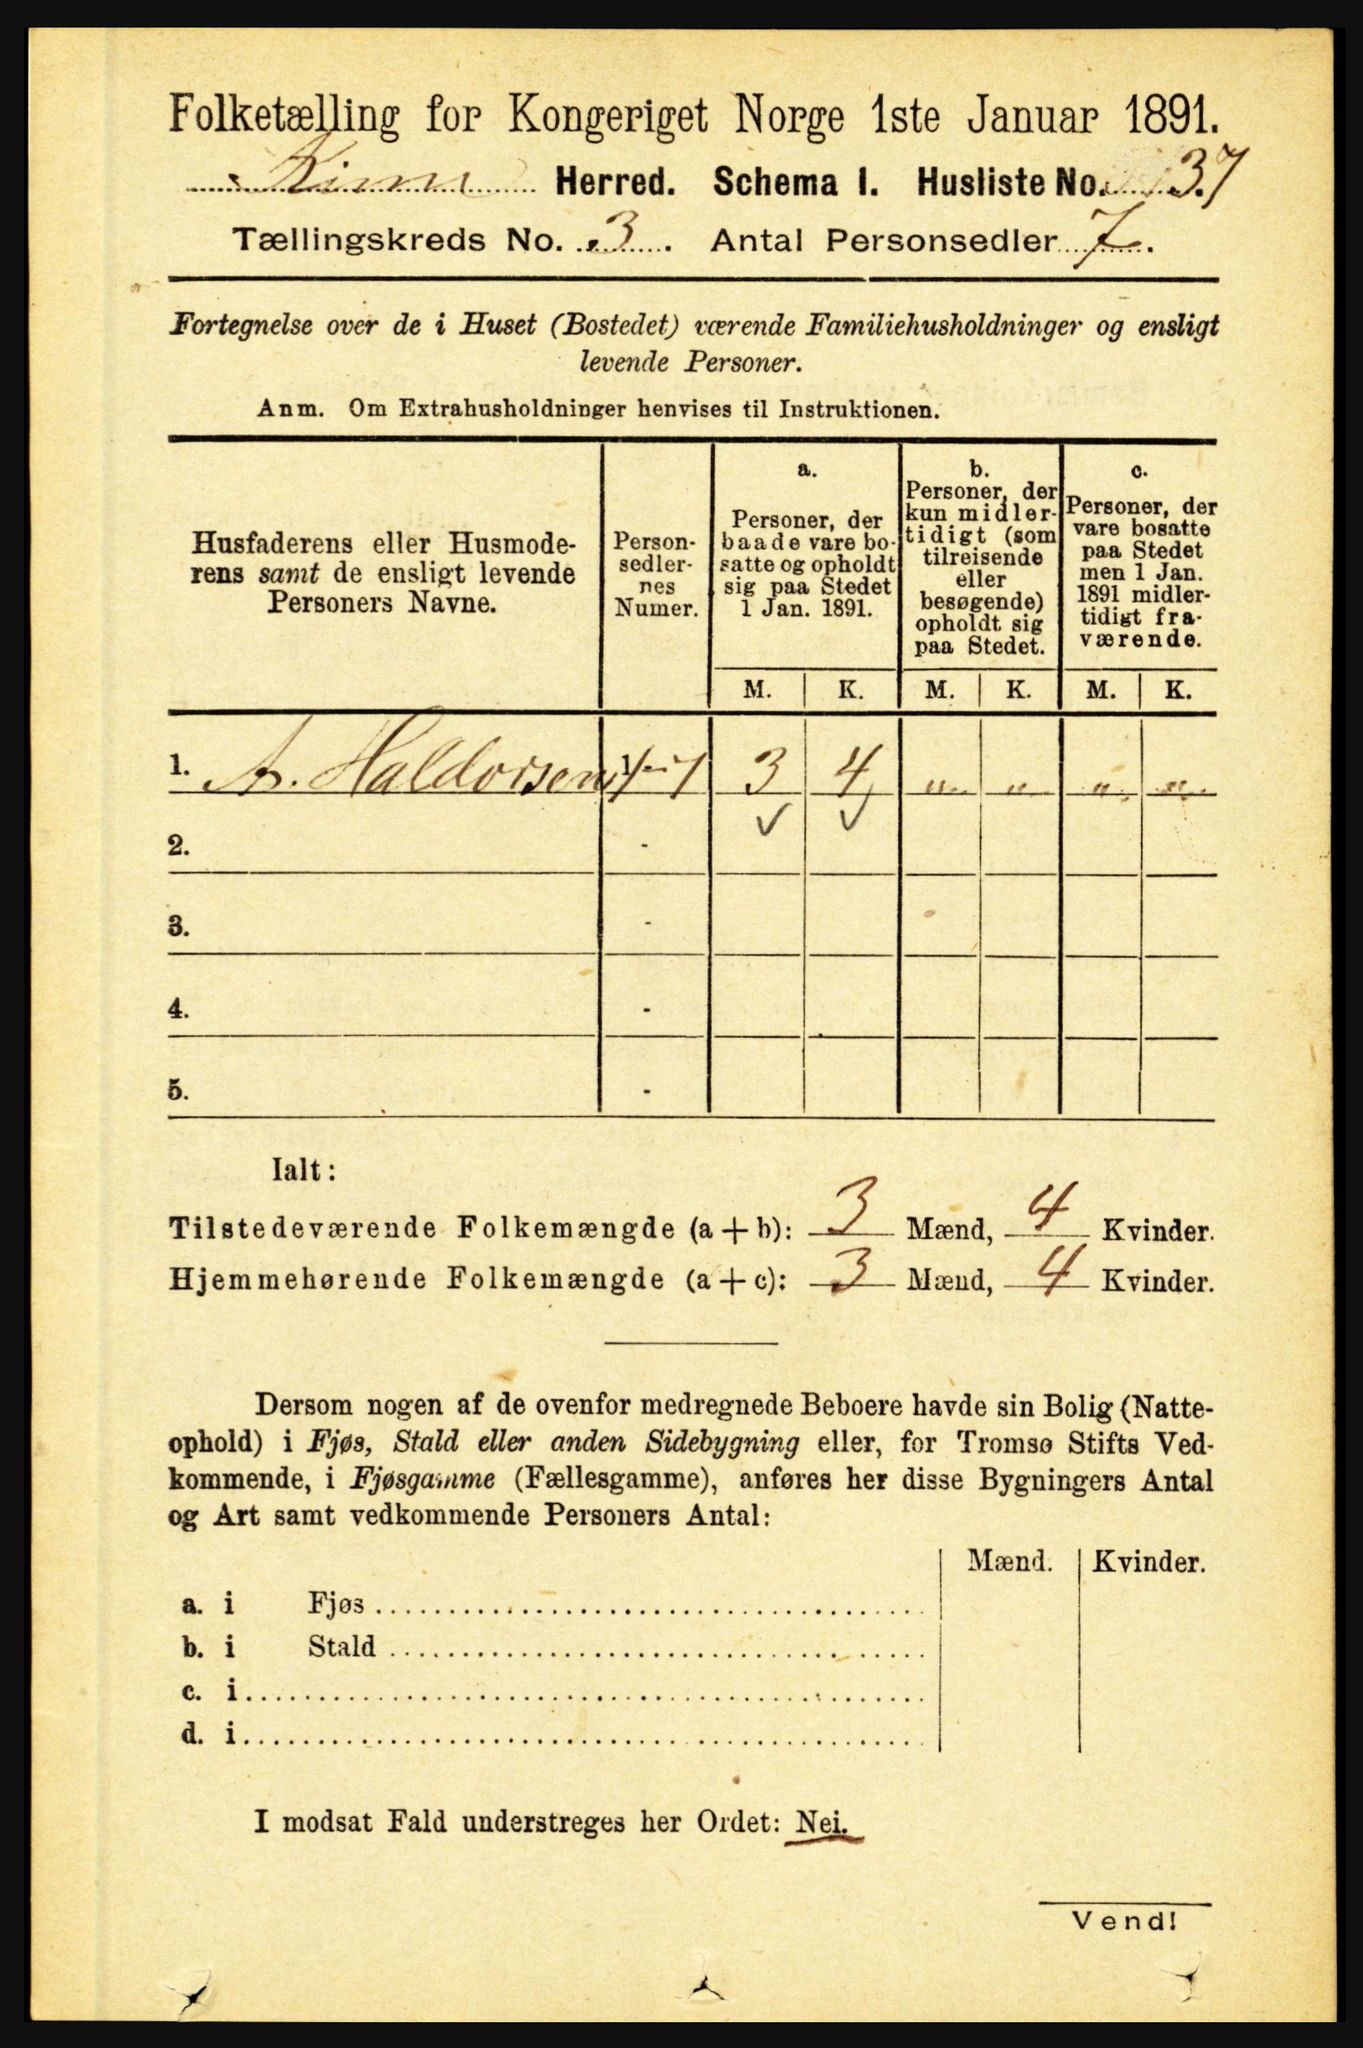 Folketælling for Kongeriget Norge 1ste Januar 1891.
Kinn Herred. Schema I. Husliste No. 37
Tællingskreds No. 3. Antal Personsedler 7.
Fortegnelse over de i Huset (Bostedet) værende Familiehusholdninger og ensligt
levende Personer.
Anm. Om Extrahusholdninger henvises til Instruktionen.
Husfaderens eller Husmode-
rens samt de ensligt levende
Personers Navne.
Person-
sedler-
nes
Numer.
a.
Personer, der
baade vare bo-
satte og opholdt
sig paa Stedet
1 Jan. 1891.
b.
Personer, der
kun midler-
tidigt (som
tilreisende
eller
besøgende)
opholdt sig
paa Stedet.
c.
Personer, der
vare bosatte
paa Stedet
men 1 Jan.
1891 midler-
tidigt fra-
værende.
M. K. M. K. M. K.
1. A. Haldorsen 1-7 3 4 " " " "
2. -
3. -
4. -
5. -
Ialt:
Tilstedeværende Folkemængde (a + b): 3 Mænd, 4 Kvinder.
Hjemmehørende Folkemængde (a + c): 3 Mænd, 4 Kvinder.
Dersom nogen af de ovenfor medregnede Beboere havde sin Bolig (Natte-
ophold) i Fjøs, Stald eller anden Sidebygning eller, for Tromsø Stifts Ved-
kommende, i Fjøsgamme (Fællesgamme), anføres her disse Bygningers Antal
og Art samt vedkommende Personers Antal:
Mænd. Kvinder.
a. i Fjøs
b. i Stald
c. i
d. i
I modsat Fald understreges her Ordet: Nei.
Vend!